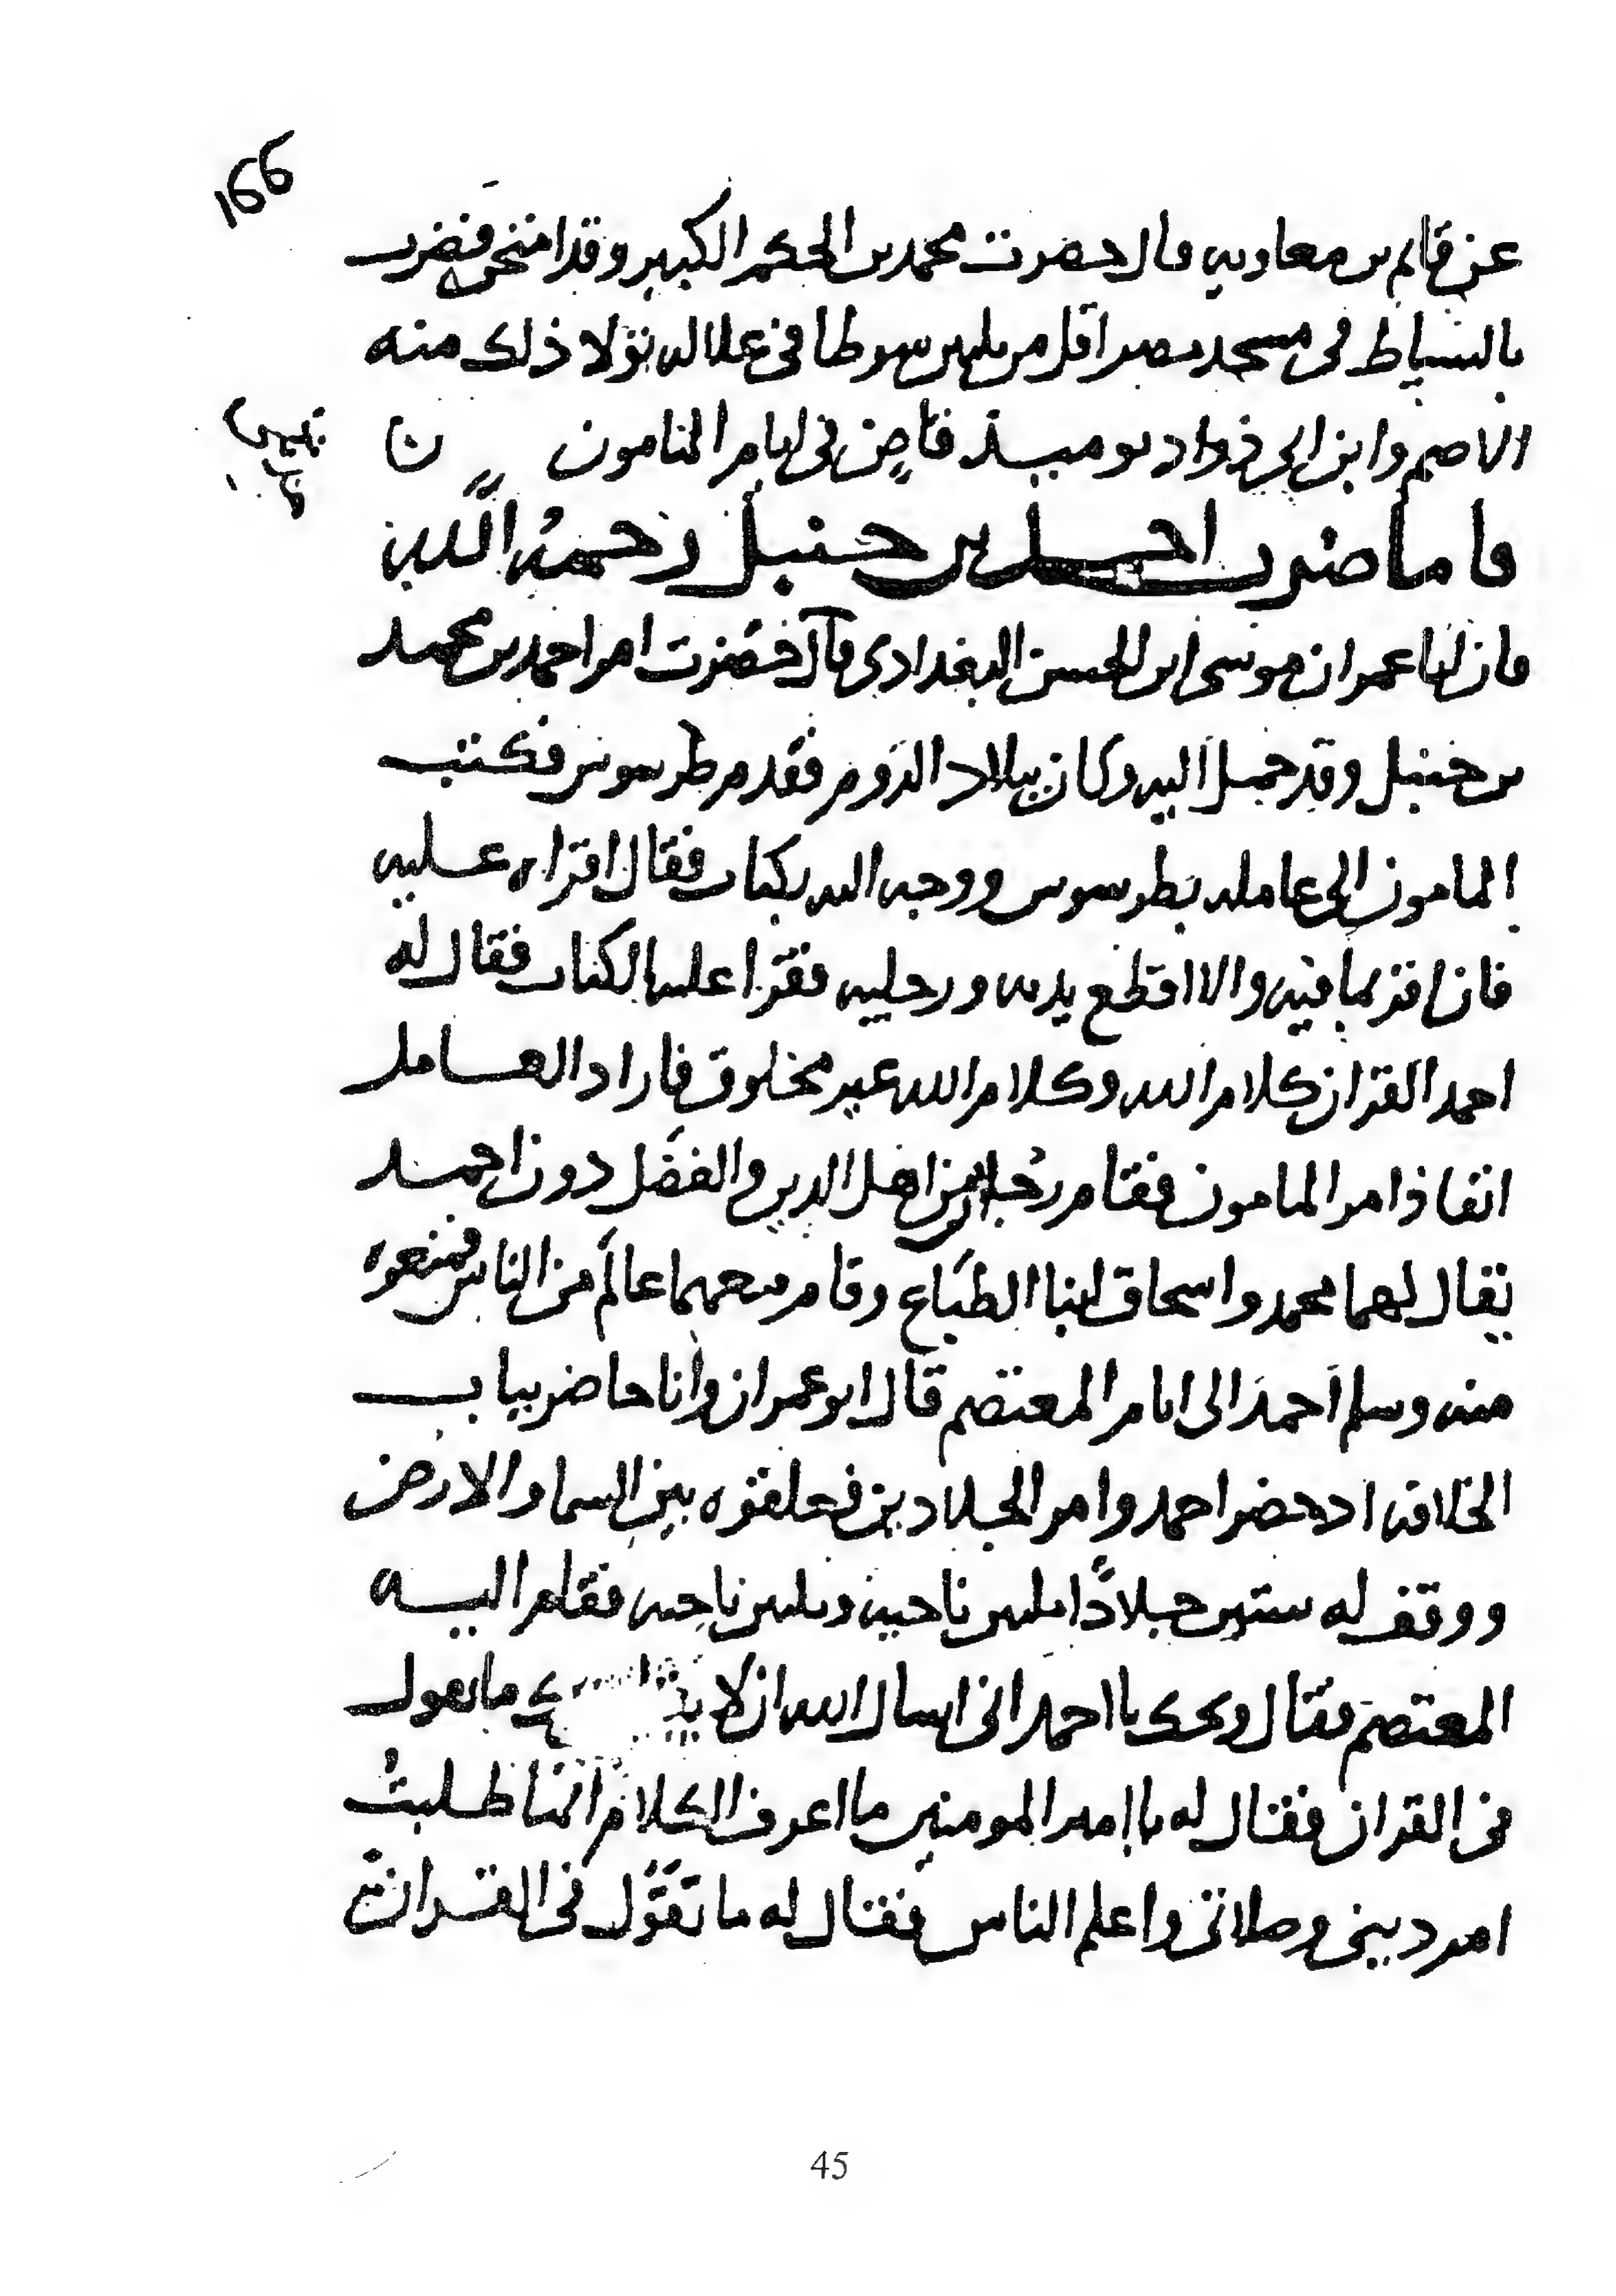 166
عن قاسم بن معاويه قال حضرت محمد بن الحكم الكبير وقد امتحن فضرب
بالسياط فى مسجد مصر اقل من ثلثين سوطا فى غلالة تولا ذلك منه
الاصم وابن ابى دواد يوميذ قاض فى ايام المامون ن
فاما ضرب احمد بن حنبل رحمه الله
فان ابا عمران موسى ابن الحسن البغدادى قال حضرت امر احمد بن محمد
بن حنبل وقد حمل اليه وكان ببلاد الروم فقدم طرسوس فكتب
المامون الى عامله بطرسوس ووجه اليه بكتاب فقال اقراه عليه
فان اقر بما فيه والا اقطع يديه ورجليه فقرا عليه الكتاب فقال له
احمد القران كلام الله وكلام الله غير مخلوق فاراد العامل
انفاذ امر المامون فقام رجلان من اهل الدين والفضل دون احمد
يقال لهما محمد واسحاق ابنا الطباع وقام معهما عالم من الناس فمنعوه
منه وسلم احمد الى ايام المعتصم قال ابو عمران وانا حاضر بباب
الخلافه اذ حضر احمد وامر الجلادين فعلقوه بين السما والارض
ووقف له ستين جلادًا ثلثين ناحيه وثلثين ناحيه فقام اليه
المعتصم فقال ويحك يا احمد انى اسال الله ان لا ما تقول
فى القران فقال له يا امير المومنين ما اعرف الكلام انما طلبت
امر دينى وصلاتى واعلم الناس فقال له ما تقول فى القران
45